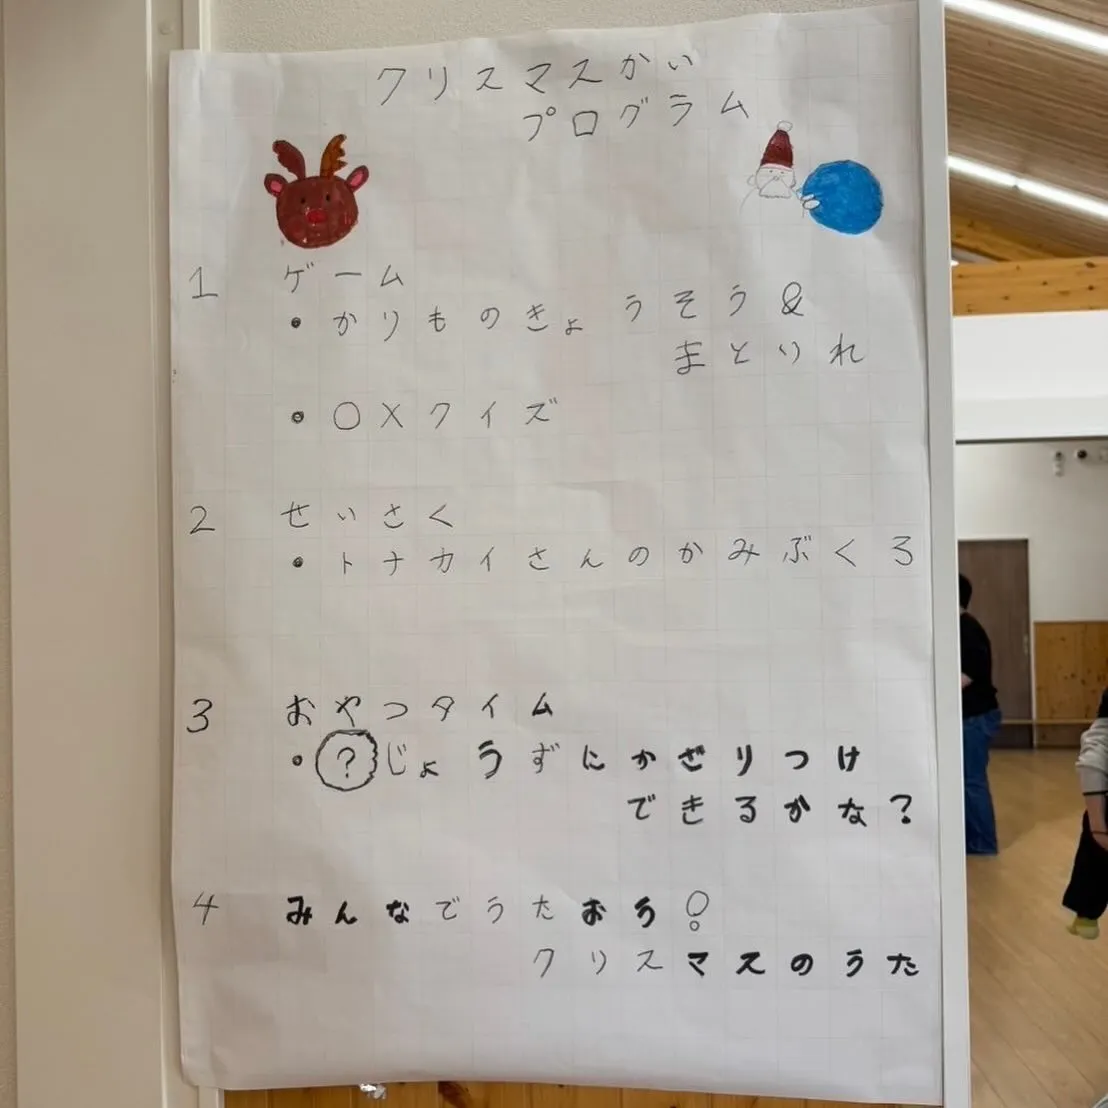 クリスマスかい
プログラム
1 ゲーム
・かりものきょうそう&
まとりれ
・〇×クイズ
2 せいさく
・トナカイさんのかみぶくろ
3 おやつタイム
・?じょうずにかざりつけ
できるかな?
4 みんなでうたおう!
クリスマスのうた